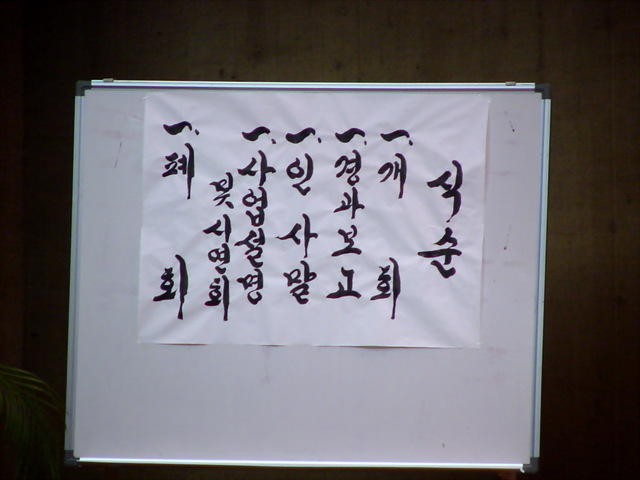 식순
一. 개회
一. 경과보고
一. 인사말
一. 사업설명
및 시연회
一. 폐회